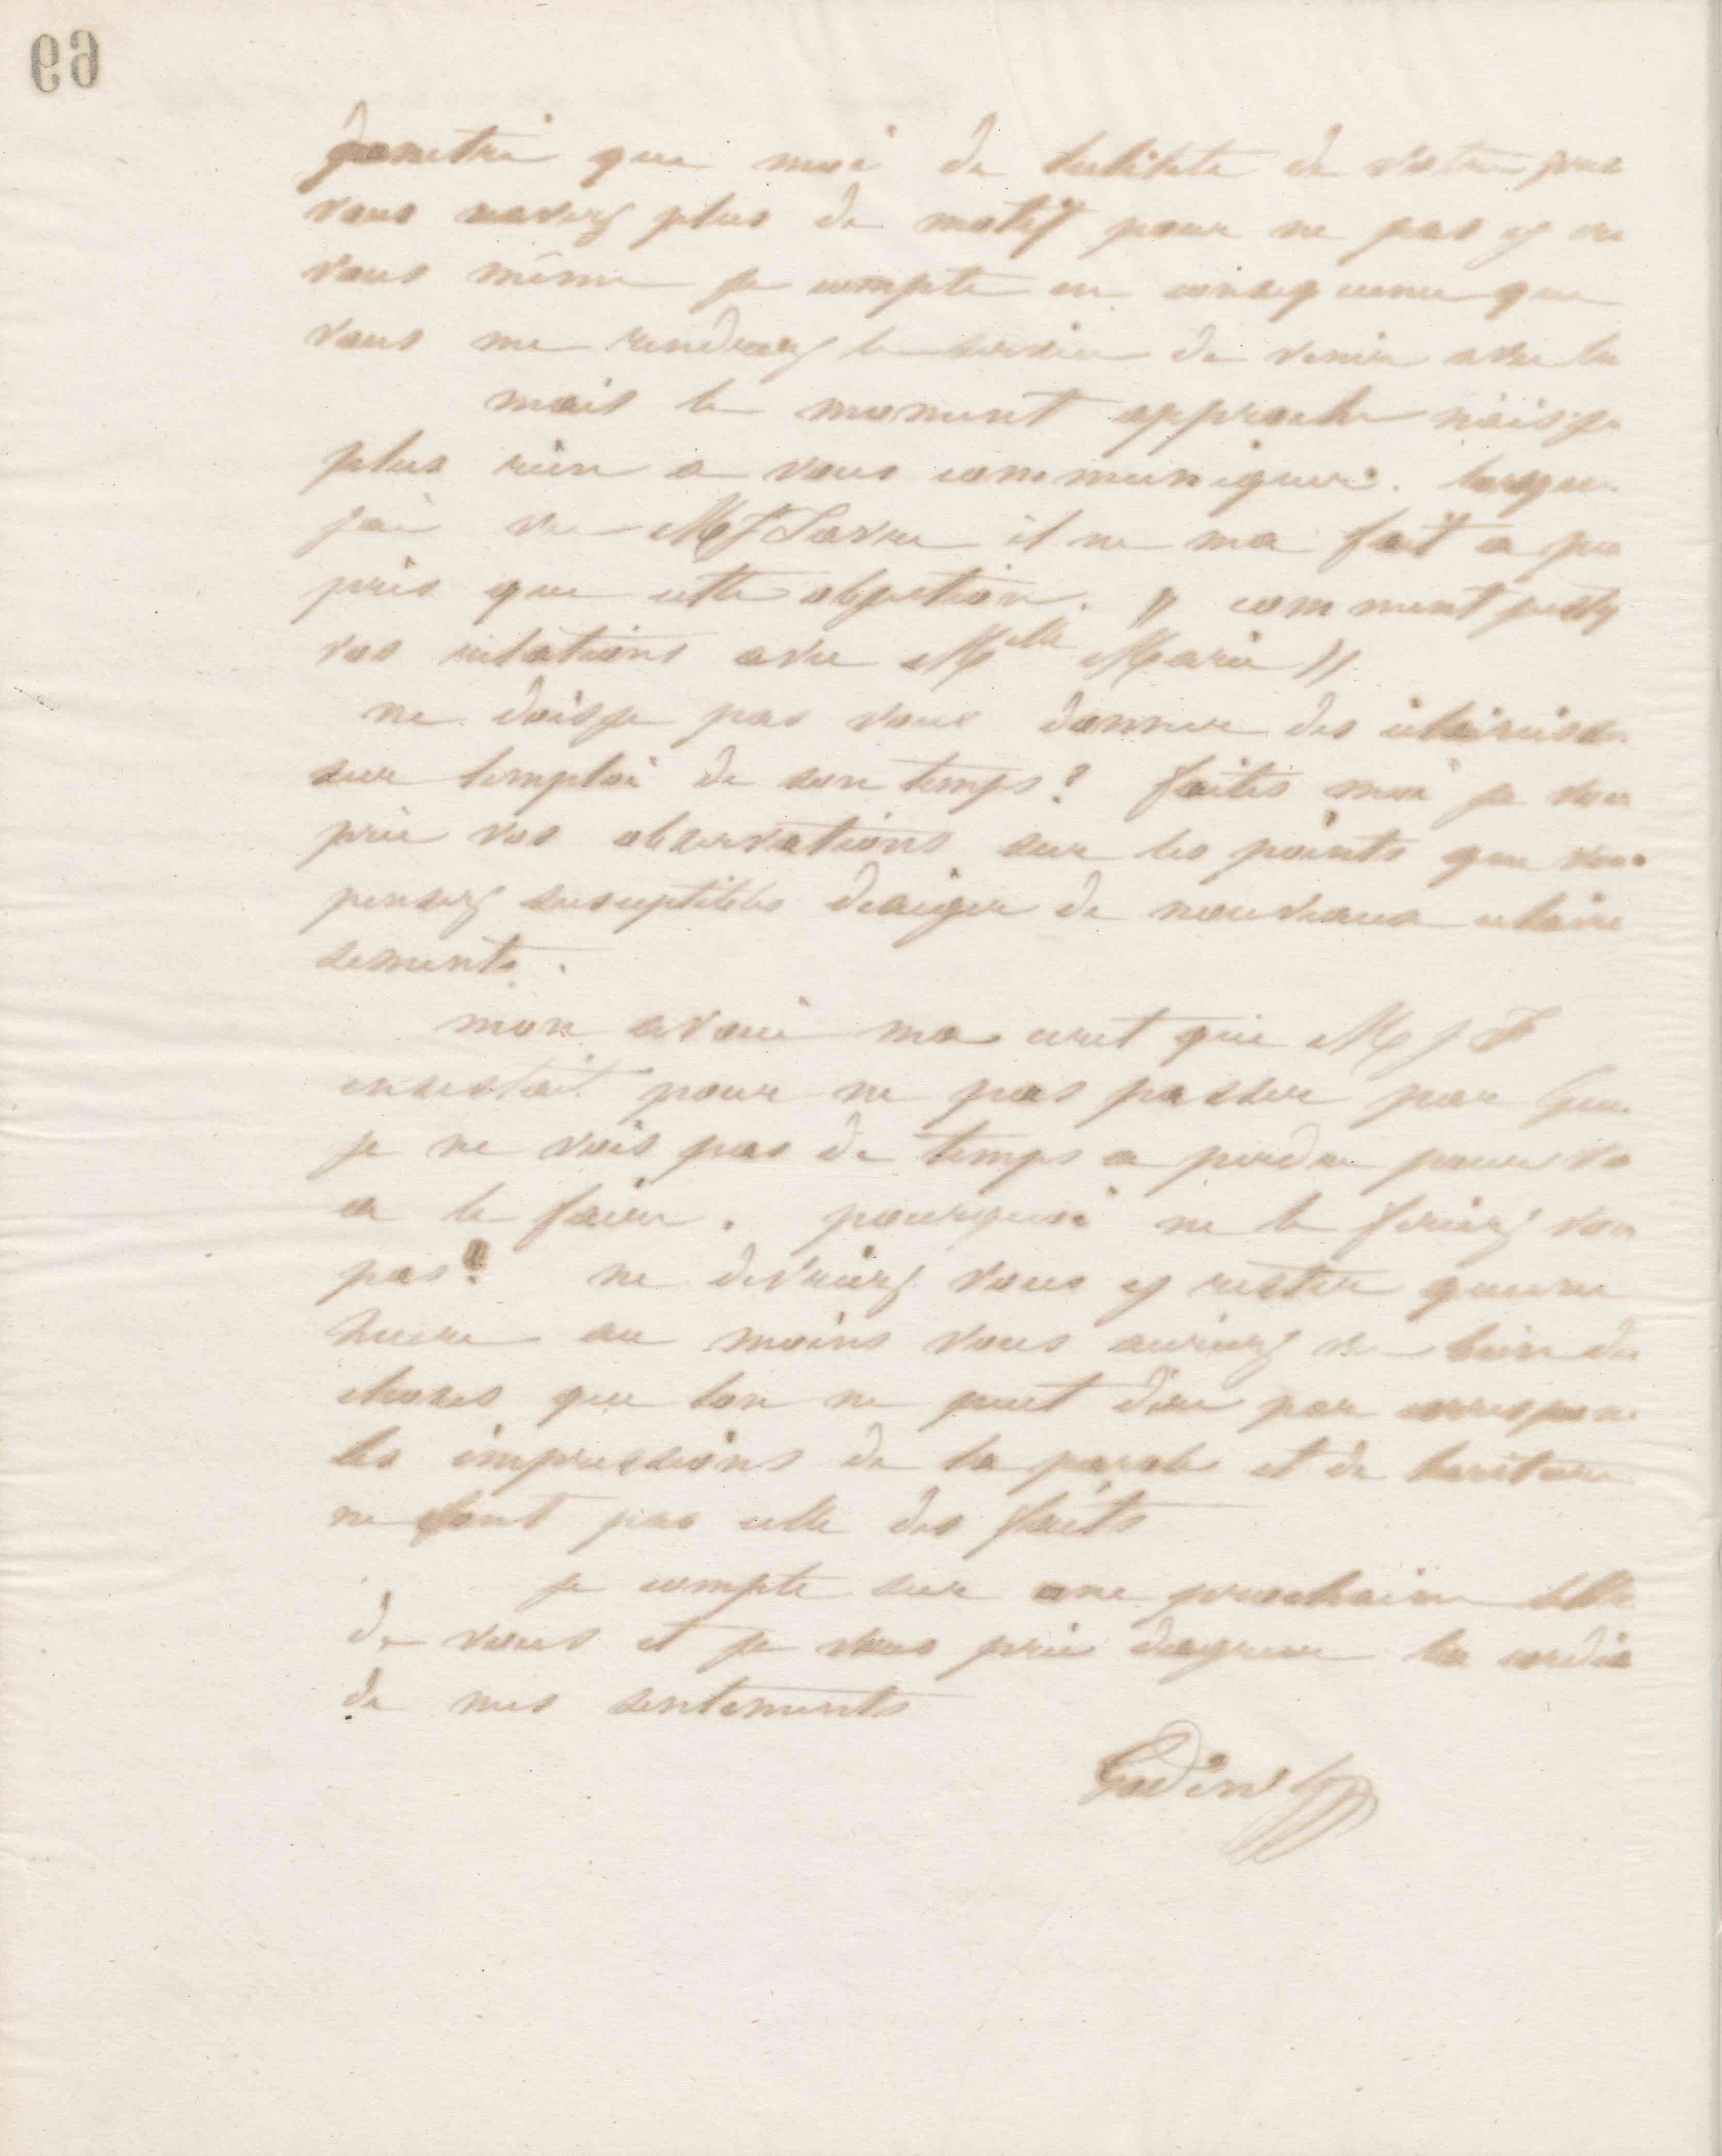 69
que moi de lutilite de votre
vous navez plus de motif pour ne pas y
vous même je compte en consequence que
vous me rendrez le service de venir avec
mais le moment approche naisje
plus rien a vous communiquer. lorsque
jai vu M J Favre il ne ma fait a peu
près que cette objection. " comment
vos relations avec Melle Marie "
ne doisje pas vous donner des
sur lemploi de son temps? faites moi je vous
prie vos observations sur les points que vous
pensez suceptibles dexiger de nouveaux eclaircis
sements.
mon avoué ma ecrit que M J F
insistait pour ne pas passer par
je ne vois pas de temps a perdre pour
a le faire. pourquoi ne le feriez vous
pas? ne devriez vous y rester quune
heure au moins vous auriez vu bien des
choses que lon ne peut dire par
les impressions de la parole et de lecriture
ne font pas celle des faits
je compte sur une prochaine lettre
de vous et je vous prie dagreer la
de mes sentiments
Godin